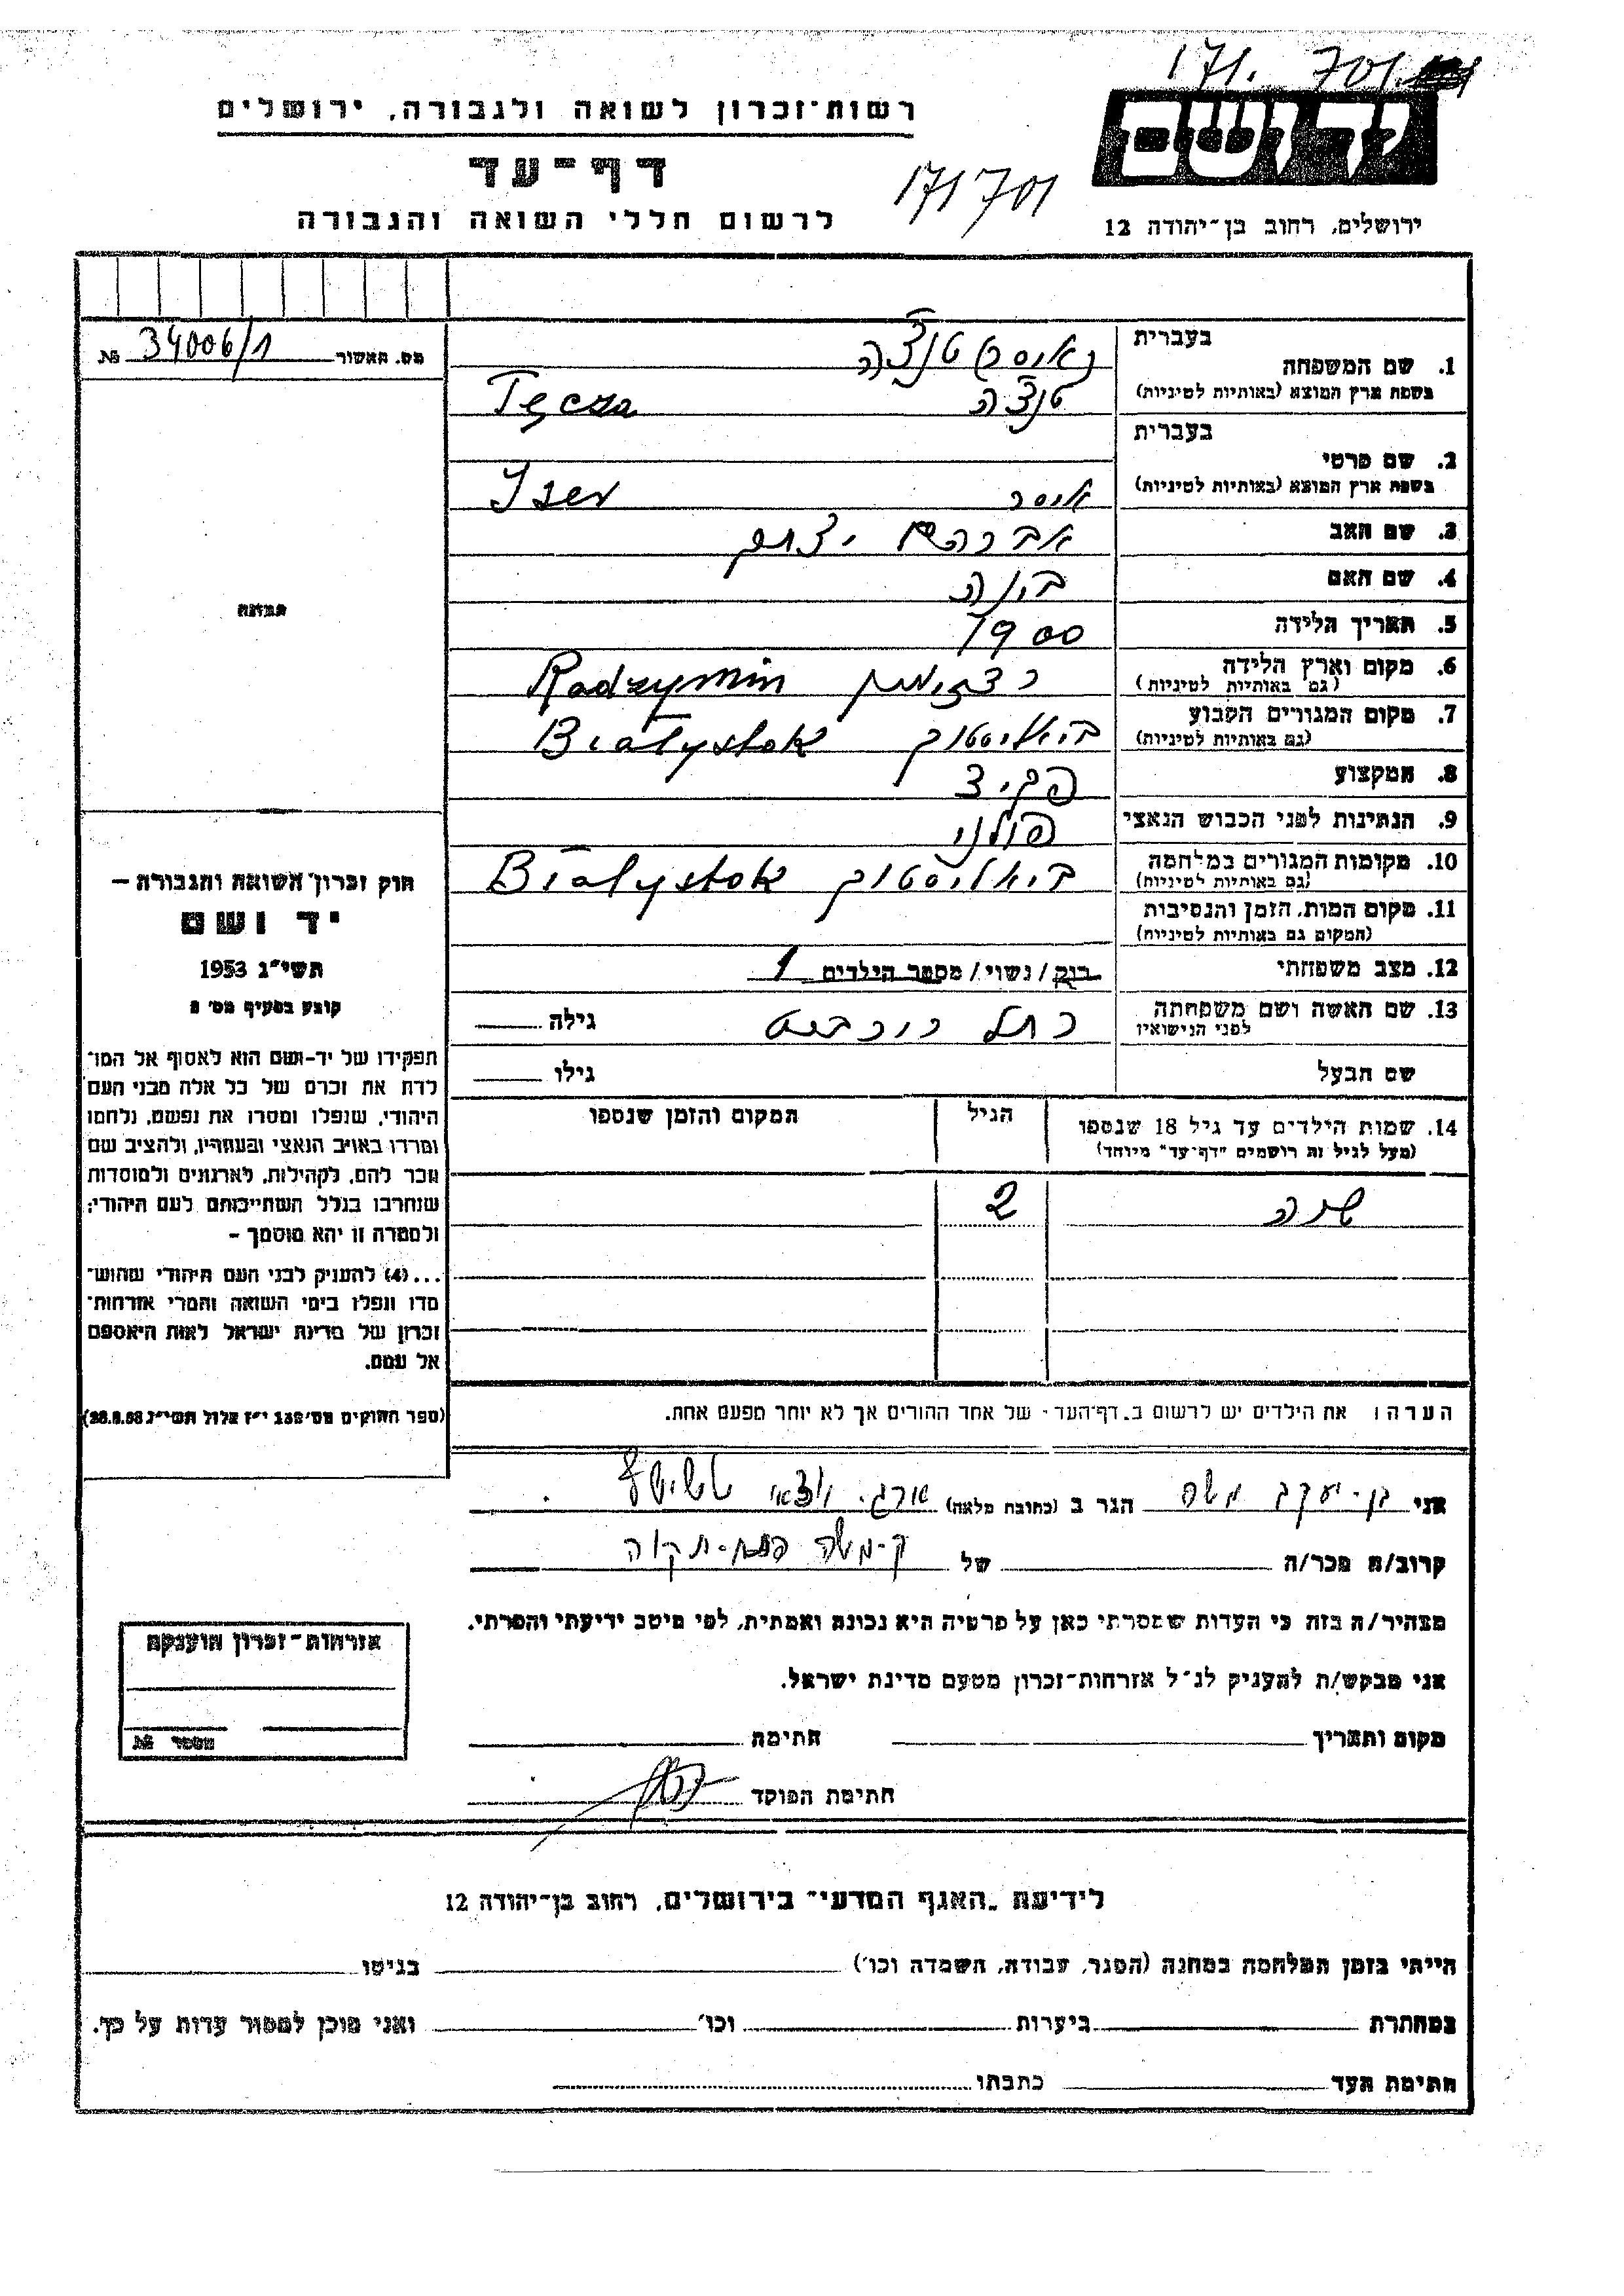 171. 701.
רשות־זכרון לשואה ולגבורה, ירושלים
יד ושם
דף־עד
171701
לרשום חללי השואה והגבורה
ירושלים, רחוב בן־יהודה 12
מס. האשור 34006/1 №
בעברית
1. שם המשפחה טנצ'ה
בשפת ארץ המוצא (באותיות לטיניות) טנצ'ה Tęcza
בעברית
2. שם פרטי
בשפת ארץ המוצא (באותיות לטיניות) איסר Iser
3. שם האב אברהם יצחק
4. שם האם בונה
5. תאריך הלידה 1900
6. מקום וארץ הלידה Radzymin
(גם באותיות לטיניות)
7. מקום המגורים הקבוע ביאליסטוק Białystok
(גם באותיות לטיניות)
8. המקצוע פקיד
9. הנתינות לפני הכבוש הנאצי פולני
10. מקומות המגורים במלחמה ביאליסטוק Białystok
(גם באותיות לטיניות)
11. מקום המות, הזמן והנסיבות
(המקום גם באותיות לטיניות)
12. מצב משפחתי רוק/נשוי/מספר הילדים 1
13. שם האשה ושם משפחתה רחל גילה
לפני הנישואין
שם הבעל גילו
14. שמות הילדים עד גיל 18 שנספו הגיל המקום והזמן שנספו
(מעל לגיל זה רושמים "דף־עד" מיוחד)
שרה 2
הערה: את הילדים יש לרשום ב„דף־העד" של אחד ההורים אך לא יותר מפעם אחת.
תמונה
חוק זכרון השואה והגבורה –
יד ושם
תשי"ג 1953
קובע בסעיף מס' 2
תפקידו של יד-ושם הוא לאסוף אל המו־
לדת את זכרם של כל אלה מבני העם
היהודי, שנפלו ומסרו את נפשם, נלחמו
ומרדו באויב הנאצי ובעוזריו, ולהציב שם
וזכר להם, לקהילות, לארגונים ולמוסדות
שנחרבו בגלל השתייכותם לעם היהודי;
ולמטרה זו יהא מוסמך –
...(4) להעניק לבני העם היהודי שהוש־
מדו ונפלו בימי השואה והמרי אזרחות־
זכרון של מדינת ישראל לאות היאספם
אל עמם.
(ספר החוקים מס' 132 י"ז אלול תשי"ג 28.8.53)
אני בן-יעקב משה הגר ב (כתובת מלאה)
ק-משה פתח-תקוה
קרוב/ה מכר/ה של
מצהיר/ה בזה כי העדות שמסרתי כאן על פרטיה היא נכונה ואמתית, לפי מיטב ידיעתי והכרתי.
אני מבקש/ת להעניק לנ"ל אזרחות־זכרון מטעם מדינת ישראל.
מקום ותאריך חתימה
חתימת הפוקד
אזרחות־זכרון הוענקה
מספר №
לידיעת „האגף המדעי" בירושלים, רחוב בן־יהודה 12
הייתי בזמן המלחמה במחנה (הסגר, עבודה, השמדה וכו') בגיטו
במחתרת ביערות וכו' ואני מוכן למסור עדות על כך.
חתימת העד כתבתו